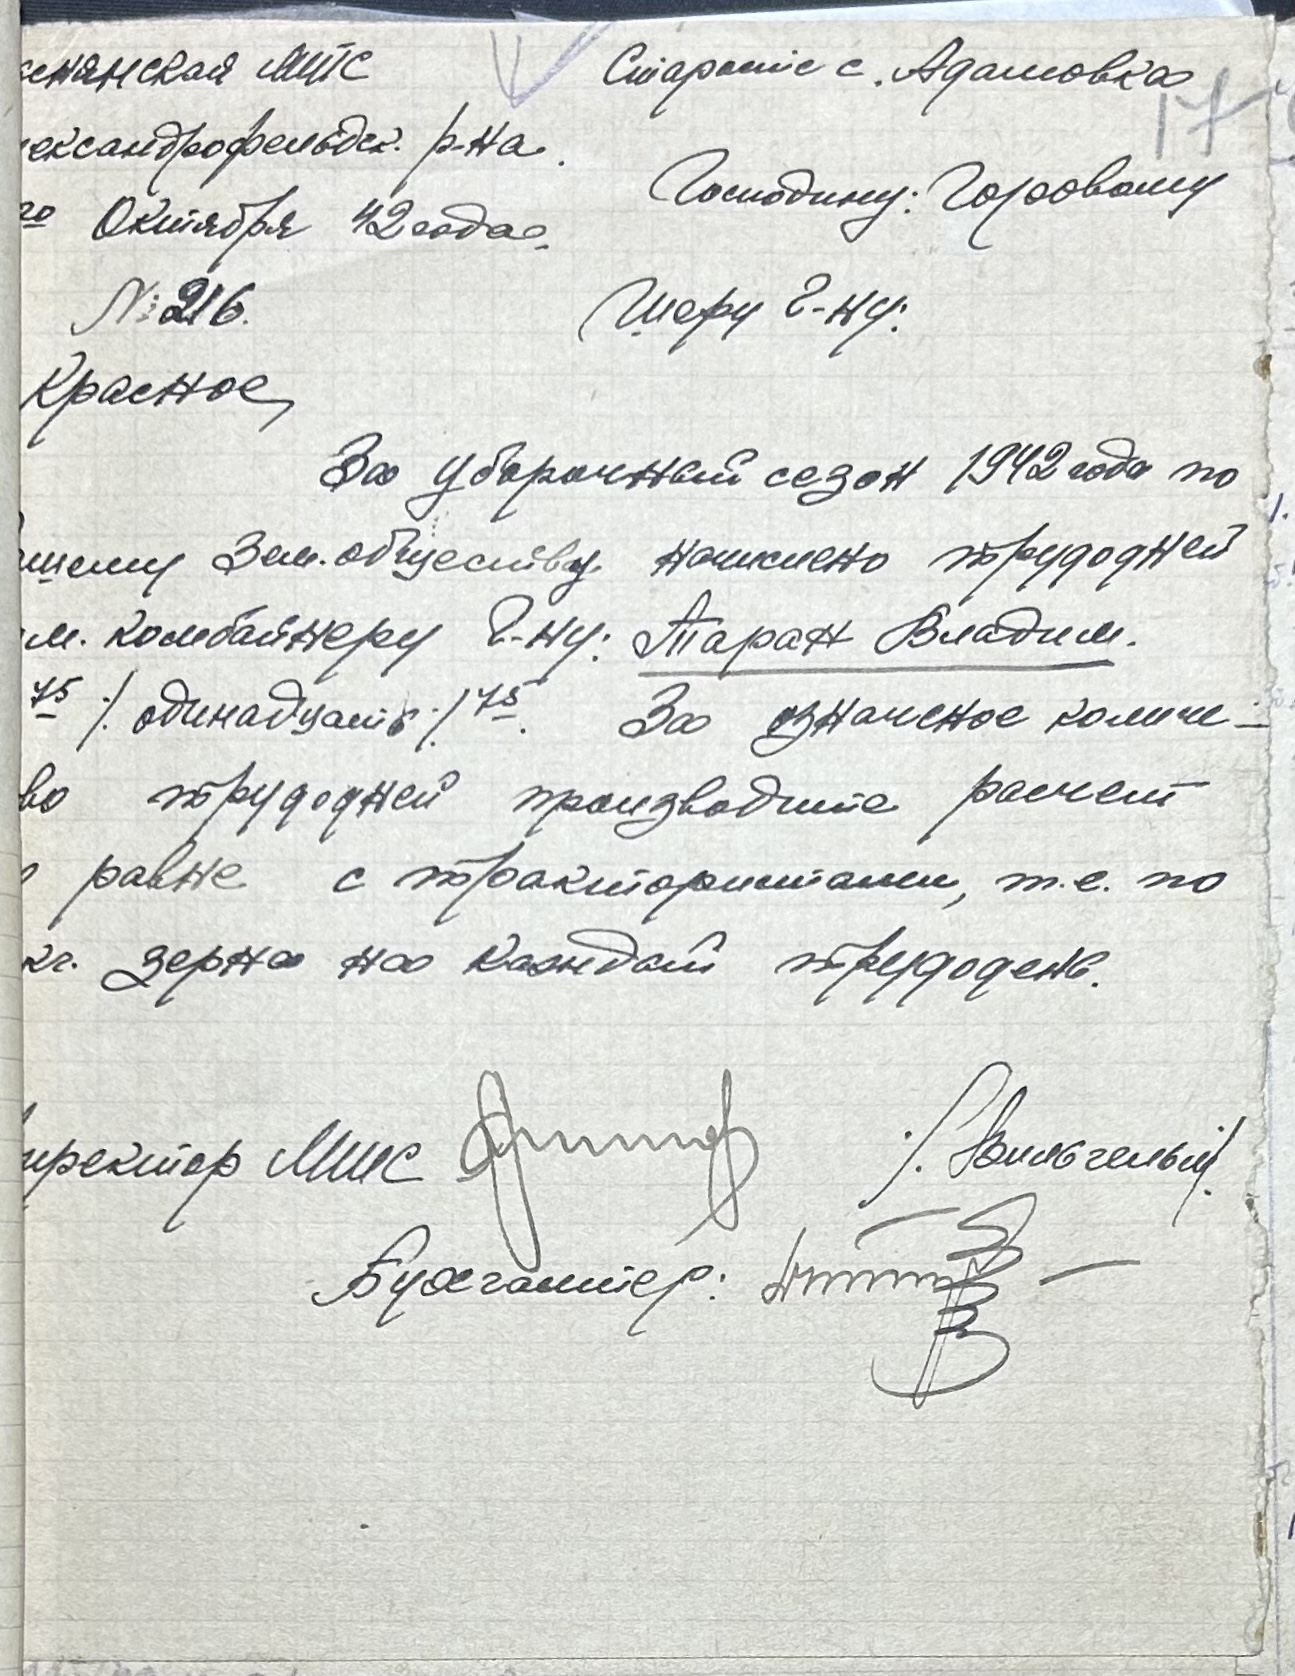 снянская МТС
Старосте с. Адамовка
17
ександрофельдск. р-на.
Господину: Горовому
го Октября 42 года.
№ 216.
Шеру г-ну:
Красное,
За уборочный сезон 1942 года по
ашему Зем. обществу начислено трудодней
ом. комбайнеру г-ну: Таран Владим.
75 /. одинадцать ./ 75. За означеное количе-
во трудодней производите расчет
равне с трактористами, т.е. по
кг. зерна на каждый трудодень.
иректор МТС /. Вильгельм ./
Бухгалтер: